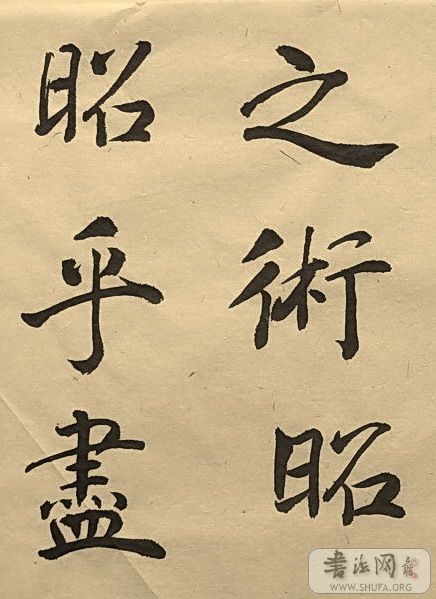 之術昭
昭乎盡
书法网
WWW.SHUFA.ORG